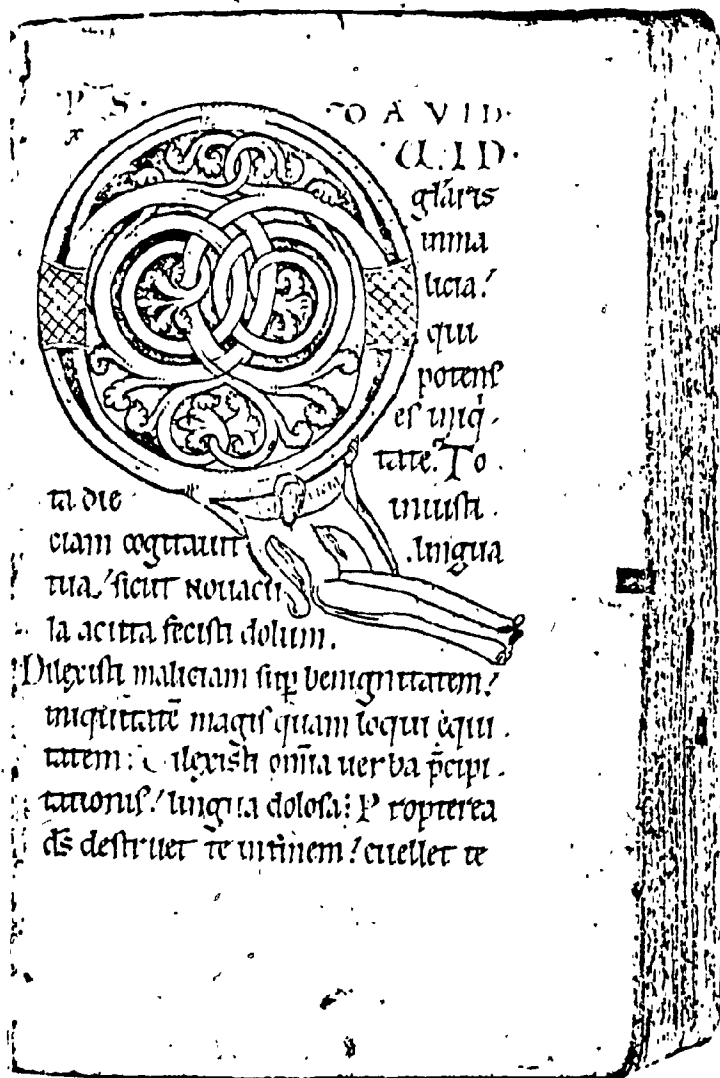 PS. DAVID.
QUID.
gl̄aris
inma
licia:
qui
potens
es iniq̇
tate. To
ta die iniusti.
ciam cogitauit lingua
tua: sicut nouacu
la acuta fecisti dolum.
Dilexisti maliciam sup̄ benignitatem:
iniquitatē magis quam loqui equi.
tatem: Dilexisti om̄ia uerba p̄cipi.
tationis: lingua dolosa: Propterea
dS destruet te infinem: euellet te